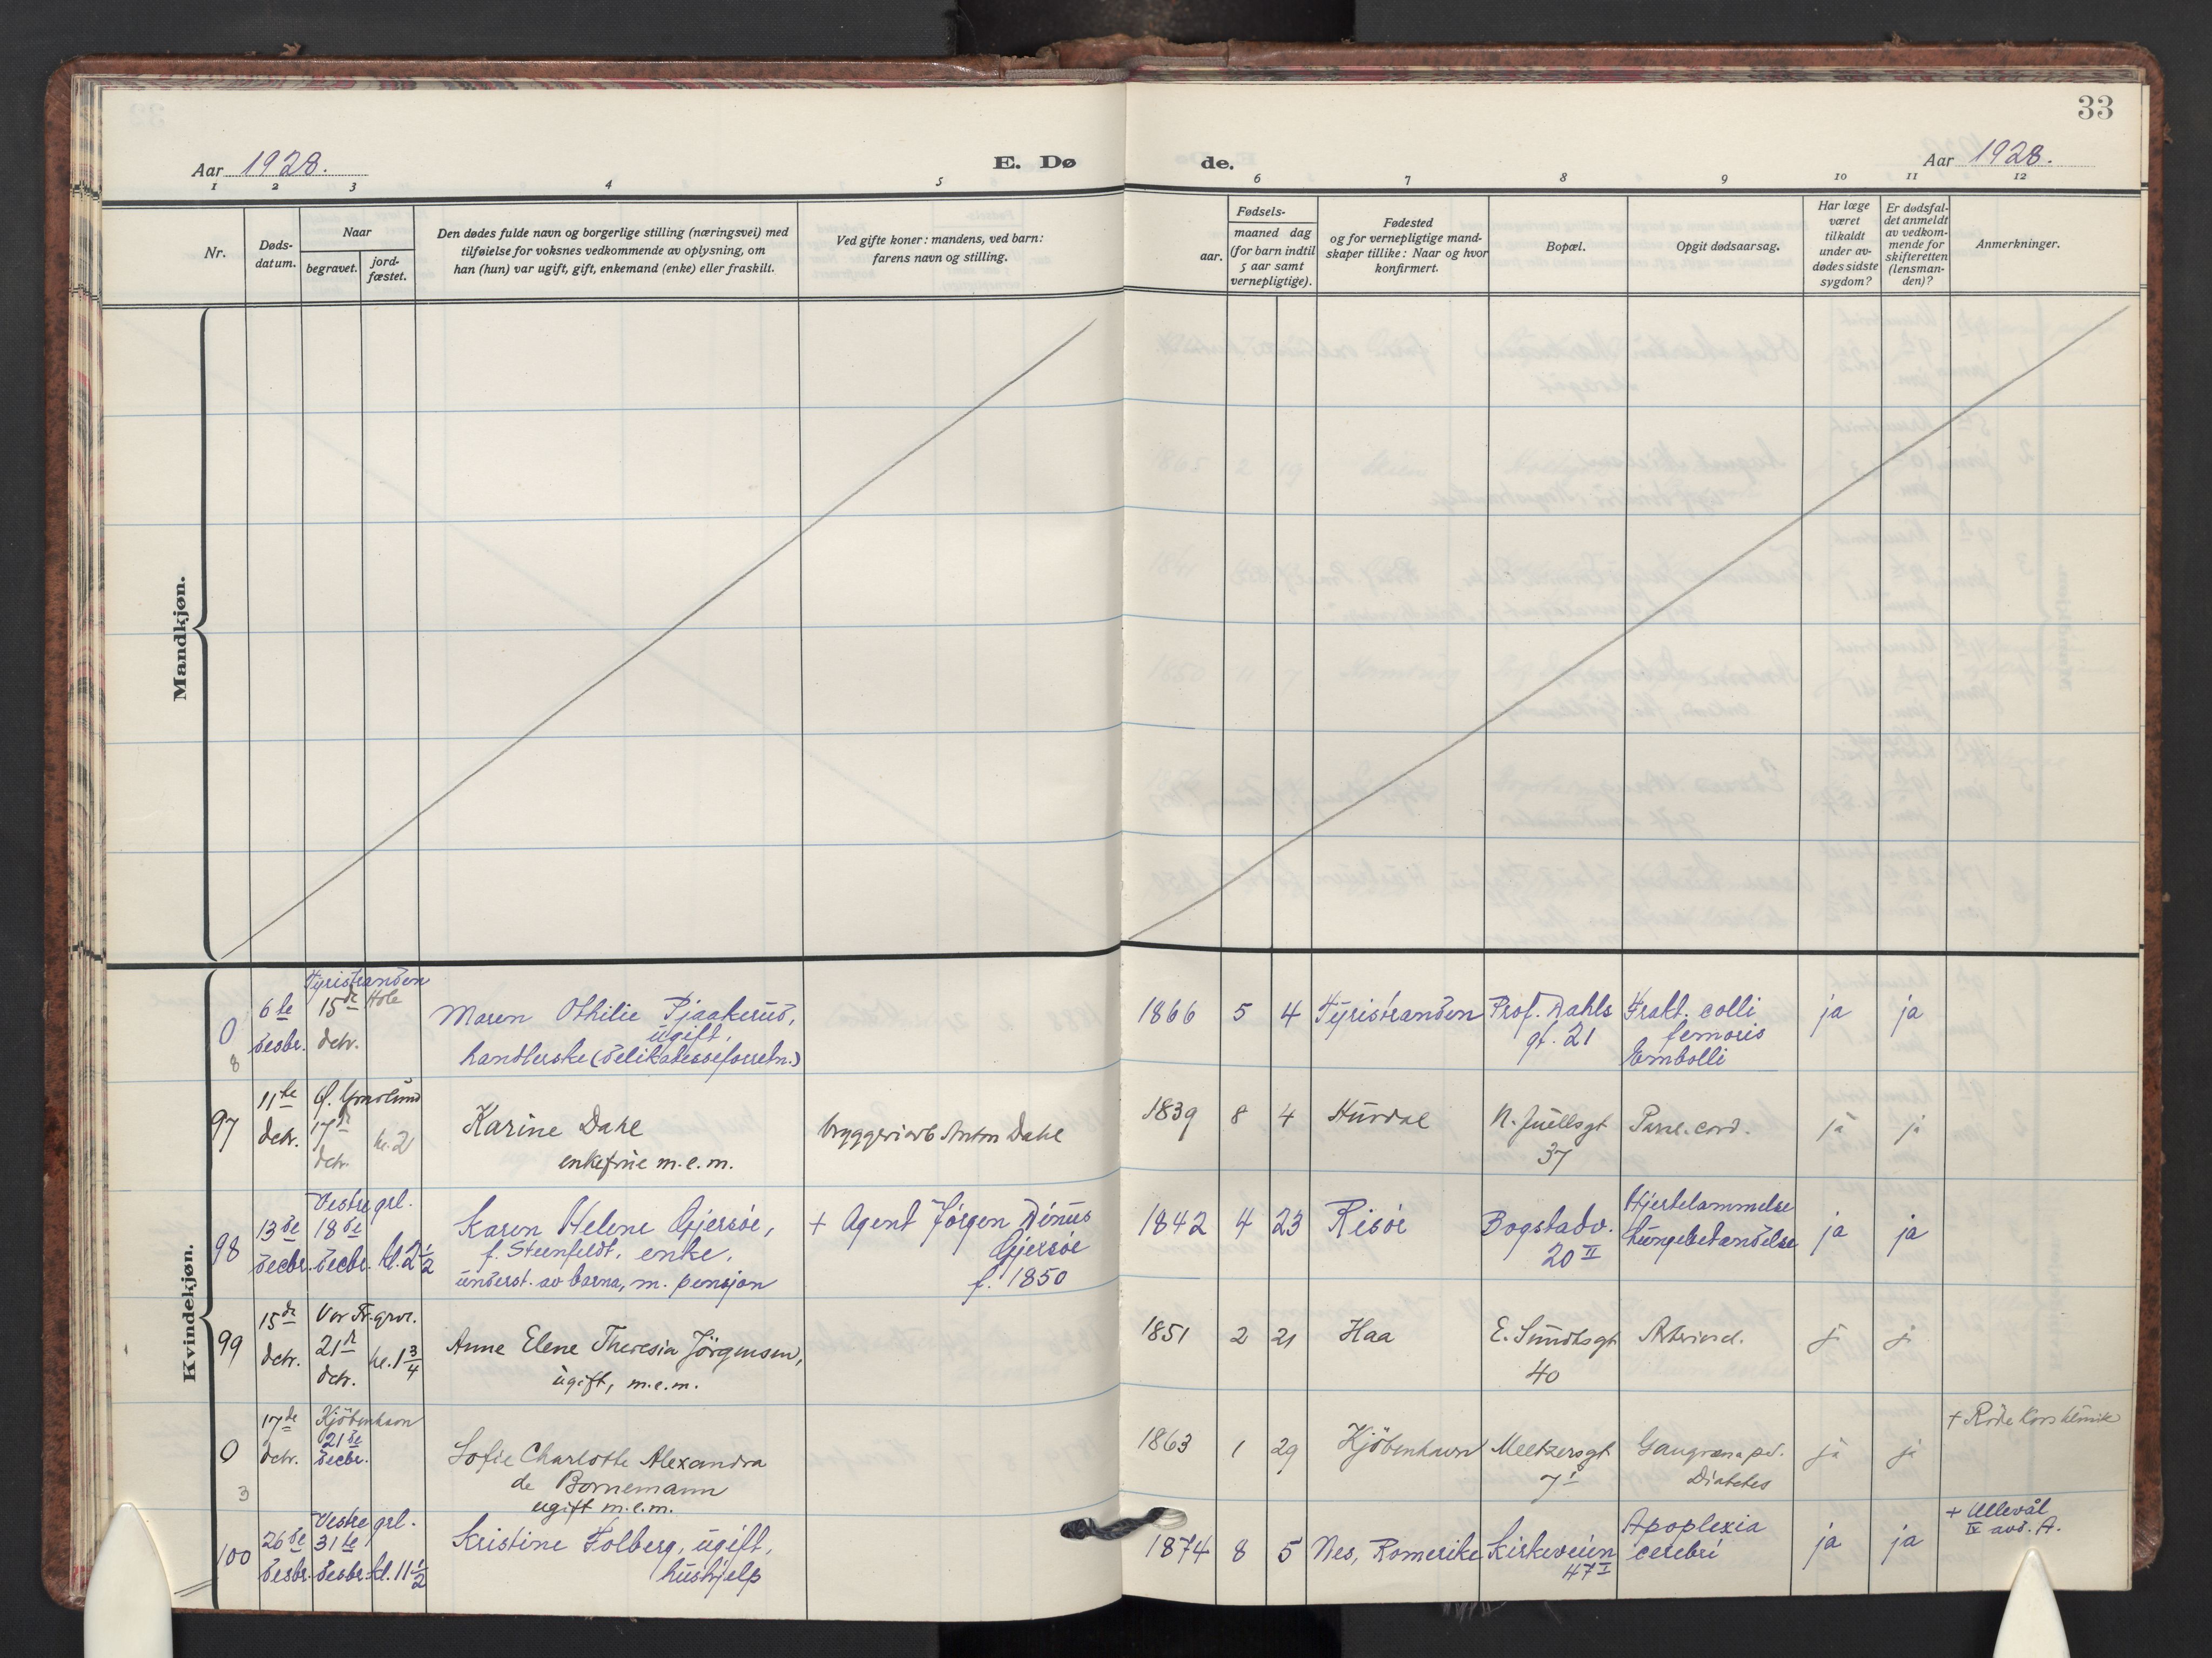 33
Aar 1928.
E. Dø
de.
Aar 1928.
1 2 3 4 5
6 7 8 9 10 11 12
Nr.
Døds-
datum.
Naar
begravet.
jord-
fæstet.
Den dødes fulde navn og borgerlige stilling (næringsvei) med
tilføielse for voksnes vedkommende av oplysning, om
han (hun) var ugift, gift, enkemand (enke) eller fraskilt.
Ved gifte koner: mandens, ved barn:
farens navn og stilling.
Fødsels-
aar.
maaned dag
(for barn indtil
5 aar samt
vernepligtige).
Fødested
og for vernepligtige mand-
skaper tillike: Naar og hvor
konfirmert.
Bopæl.
Opgit dødsaarsag.
Har læge
været
tilkaldt
under av-
dødes sidste
sygdom?
Er dødsfal-
det anmeldt
av vedkom-
mende for
skifteretten
(lensman-
den)?
Anmerkninger.
Mandkjøn.
Kvindekjøn.
0
8
6te
desbr.
Tyristranden
15de Hole
decbr.
Maren Othilie Pjaakerud,
ugift,
handlerske (delikatesseforretn.)
1866 5 4
Tyristranden
Prof. Dahls
gt. 21
Frakt. colli
femoris
Embolli
ja ja
97
11te
decbr.
17de
decbr.
kl. 2
Karine Dahl
enkefrue m.e.m.
bryggeriarb Anton Dahl
1839 8 4
Hurdal
N. Juellsgt
37
cord.
ja ja
98
13de
decbr.
Vestre grl.
18de
decbr.
kl. 2 1/2
Karen Helene Gjersøe,
f. Steenfeldt, enke,
underst. av barna, m. pensjon
+ Agent Jørgen Dinus
Gjersøe
f. 1850
1842 4 23
Risør
Bogstadv.
20 II
Hjertelammelse
Lungebetændelse
ja ja
99
15de
decbr.
Vor Fr. grl.
21de
decbr.
kl. 1 3/4
Anne Elene Theresia Jörgensen,
ugift, m.e.m.
1851 2 21
Haa
E. Sundtsgt
40
Arterioscl.
ja ja
0
3
17de
decbr.
Kjöbenhavn
21de
decbr.
Sofie Charlotte Alexandra
de Bornemann
ugift m.e.m.
1863 1 29
Kjöbenhavn
Meltzersgt
7 I
Gangræna pd.
Diabetes
ja ja
+ Røde Kors klinik
100
26de
desbr.
Vestre grl.
31te
desbr.
kl. 11 1/2
Kristine Folberg, ugift,
hushjelp
1874 8 5
Nes, Romerike
Kirkeveien
47 I
Apoplexia
cerebri
ja ja
+ Ullevål
IX avd. A.